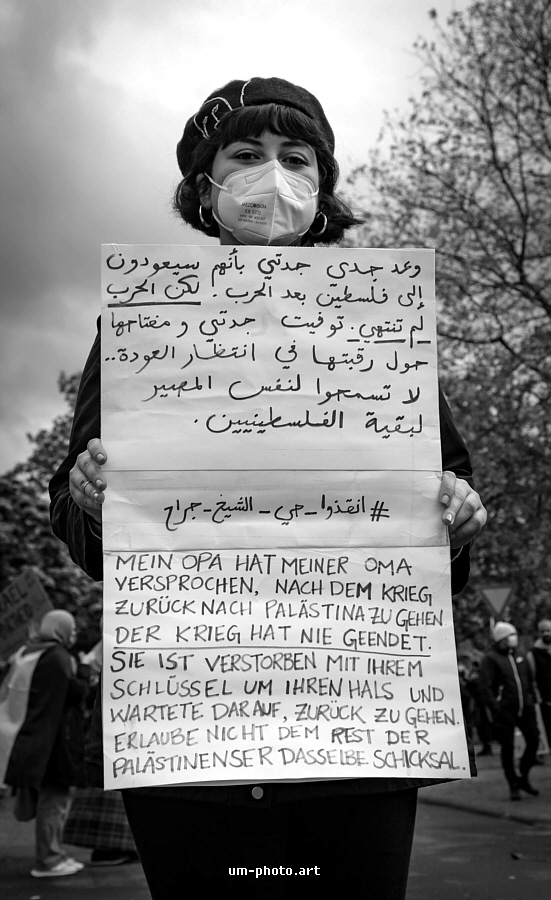 وعد جدي جدتي بأنهم سيعودون
إلى فلسطين بعد الحرب. لكن الحرب
لم تنتهي. توفيت جدتي و مفتاحها
حول رقبتها في انتظار العودة..
لا تسمحوا لنفس المصير
لبقية الفلسطينيين.
#انقذوا_حي_الشيخ_جراح
MEIN OPA HAT MEINER OMA
VERSPROCHEN, NACH DEM KRIEG
ZURÜCK NACH PALÄSTINA ZU GEHEN
DER KRIEG HAT NIE GEENDET.
SIE IST VERSTORBEN MIT IHREM
SCHLÜSSEL UM IHREN HALS UND
WARTETE DARAUF, ZURÜCK ZU GEHEN.
ERLAUBE NICHT DEM REST DER
PALÄSTINENSER DASSELBE SCHICKSAL.
um-photo.art